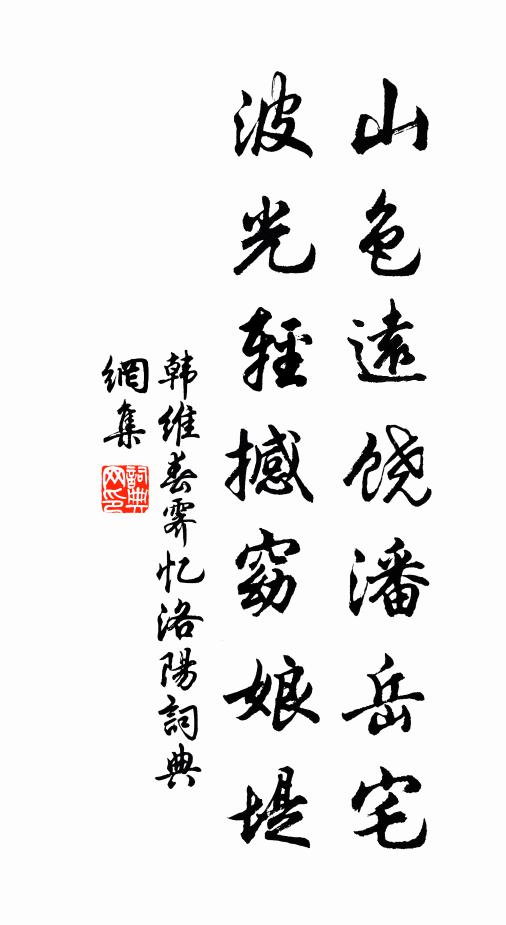 山色遠饶潘岳宅
波光輕撼窈娘堤
韩维春霽忆洛陽詞典
網集
詞典
网印